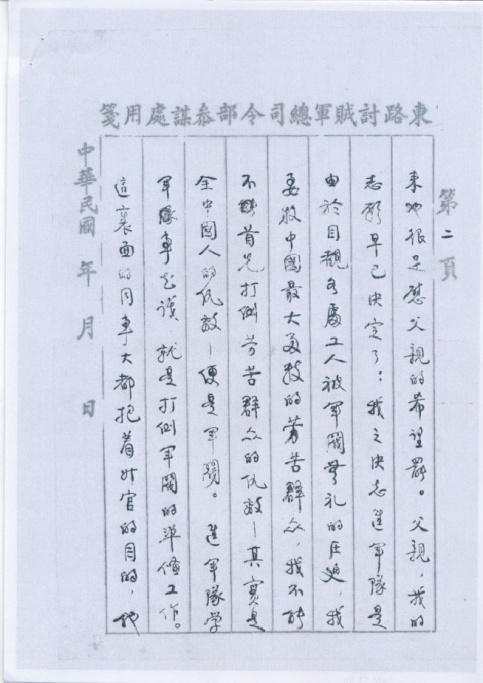 東路討賊軍總司令部叅謀處用箋
第二頁
來也很足慰父親的希望罷。父親，我的
志願早已決定了：我之決志進軍隊是
由於目覩各處工人被軍閥無礼的压迫，我
要救中國最大多数的劳苦群众，我不能
不首先打倒劳苦群众的仇敌—其實是
全中國人的仇敌—便是軍閥。進軍隊学
軍事，就是打倒軍閥的準備工作。
這裏面的同事大都抱着升官的目的，他
中華民國 年 月 日